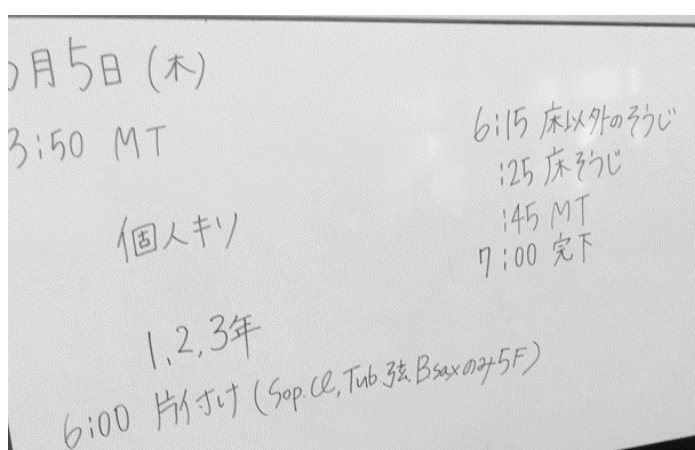 月5日(木)
3:50 MT
個人キソ
1,2,3年
6:00 片付け(Sop.Cl,Tub.弦.Bsaxのみ5F)
6:15 床以外のそうじ
:25 床そうじ
:45 MT
7:00 完下